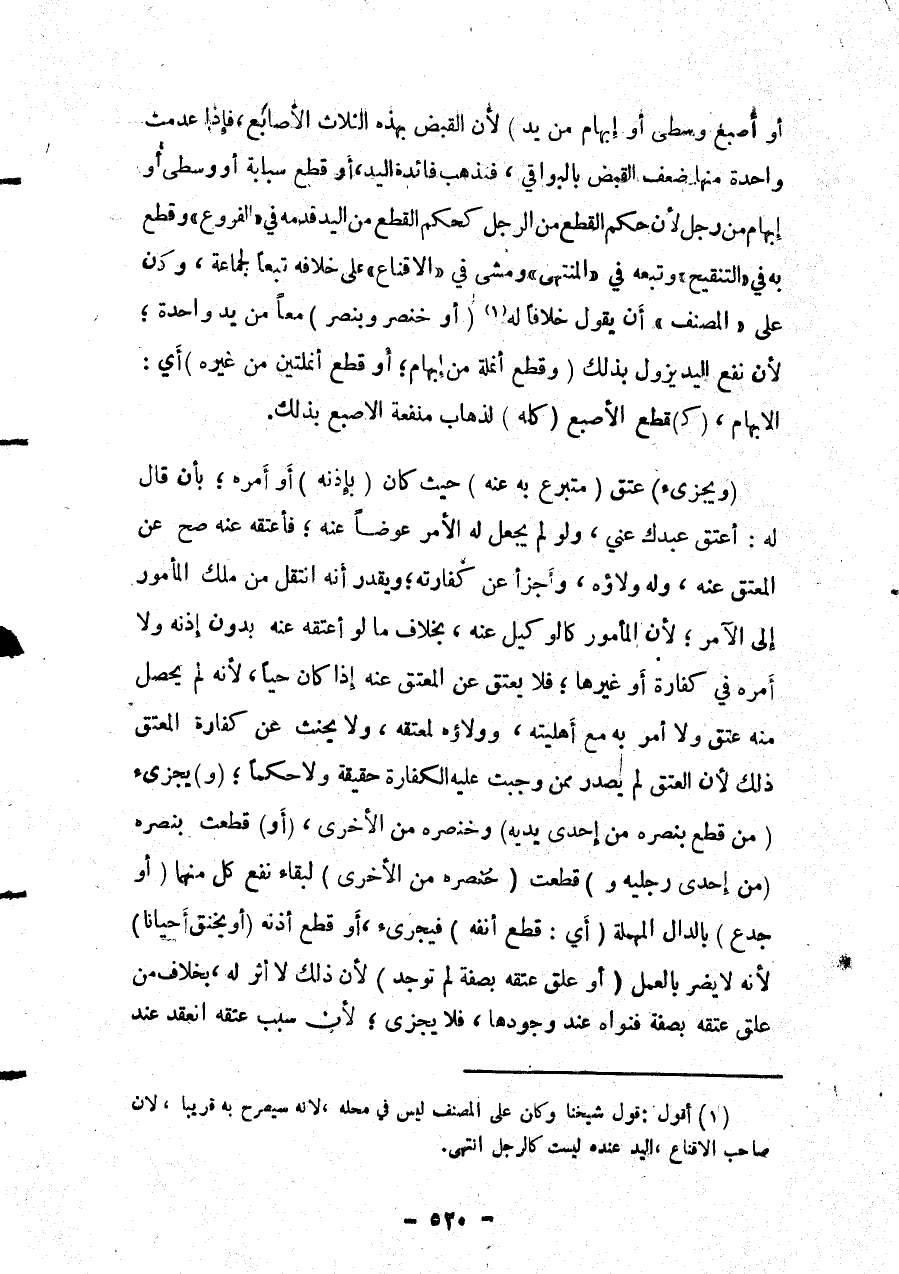 أو أصبغ وسطى أو إبهام من يد ) لأن القبض بهذه الثلاث الأصابع ، فإذا عدمت
واحدة منها ضعف القبض بالبواقي ، فتذهب فائدة اليد ، أو قطع سبابة أو وسطى أو
إبهام من رجل لأن حكم القطع من الرجل كحكم القطع من اليد قدمه في «الفروع» وقطع
به في «التنقيح» وتبعه في «المنتهى» ومشى في «الاقناع» على خلافه تبعاً لجماعة ، وكان
على « المصنف » أن يقول خلافاً له (١) ( أو خنصر وبنصر ) معاً من يد واحدة ؛
لأن نفع اليد يزول بذلك ( وقطع أنملة من إبهام ؛ أو قطع أنملتين من غيره ) أي :
الابهام ، ( كـ ) قطع الأصبع ( كله ) لذهاب منفعة الاصبع بذلك .
( ويجزىء ) عتق ( متبرع به عنه ) حيث كان ( بإذنه ) أو أمره ؛ بأن قال
له : أعتق عبدك عني ، ولو لم يجعل له الأمر عوضاً عنه ؛ فأعتقه عنه صح عن
المعتق عنه ، وله ولاؤه ، وأجزأ عن كفارته ؛ ويقدر أنه انتقل من ملك المأمور
إلى الآمر ؛ لأن المأمور كالوكيل عنه ، بخلاف ما لو أعتقه عنه بدون إذنه ولا
أمره في كفارة أو غيرها ؛ فلا يعتق عن المعتق عنه إذا كان حياً ، لأنه لم يحصل
منه عتق ولا أمر به مع أهليته ، وولاؤه لمعتقه ، ولا يجنث عن كفارة المعتق
ذلك لأن العتق لم يصدر ممن وجبت عليه الكفارة حقيقة ولا حكماً ؛ (و) يجزىء
( من قطع بنصره من إحدى يديه) وخنصره من الأخرى ، (أو) قطعت بنصره
(من إحدى رجليه و ) قطعت ( خنصره من الأخرى ) لبقاء نفع كل منها ( أو
جدع ) بالدال المهملة ( أي : قطع أنفه ) فيجزىء ، أو قطع أذنه ( أو يخنق أحيانا )
لأنه لا يضر بالعمل ( أو علق عتقه بصفة لم توجد ) لأن ذلك لا أثر له ، بخلاف من
علق عتقه بصفة فنواه عند وجودها ، فلا يجزى ؛ لأن سبب عتقه انعقد عند
(١) أقول : قول شيخنا وكان على المصنف ليس في محله ، لانه سيصرح به قريبا ، لان
صاحب الاقناع ، اليد عنده ليست كالرجل انتهى .
- ٥٢٠ -